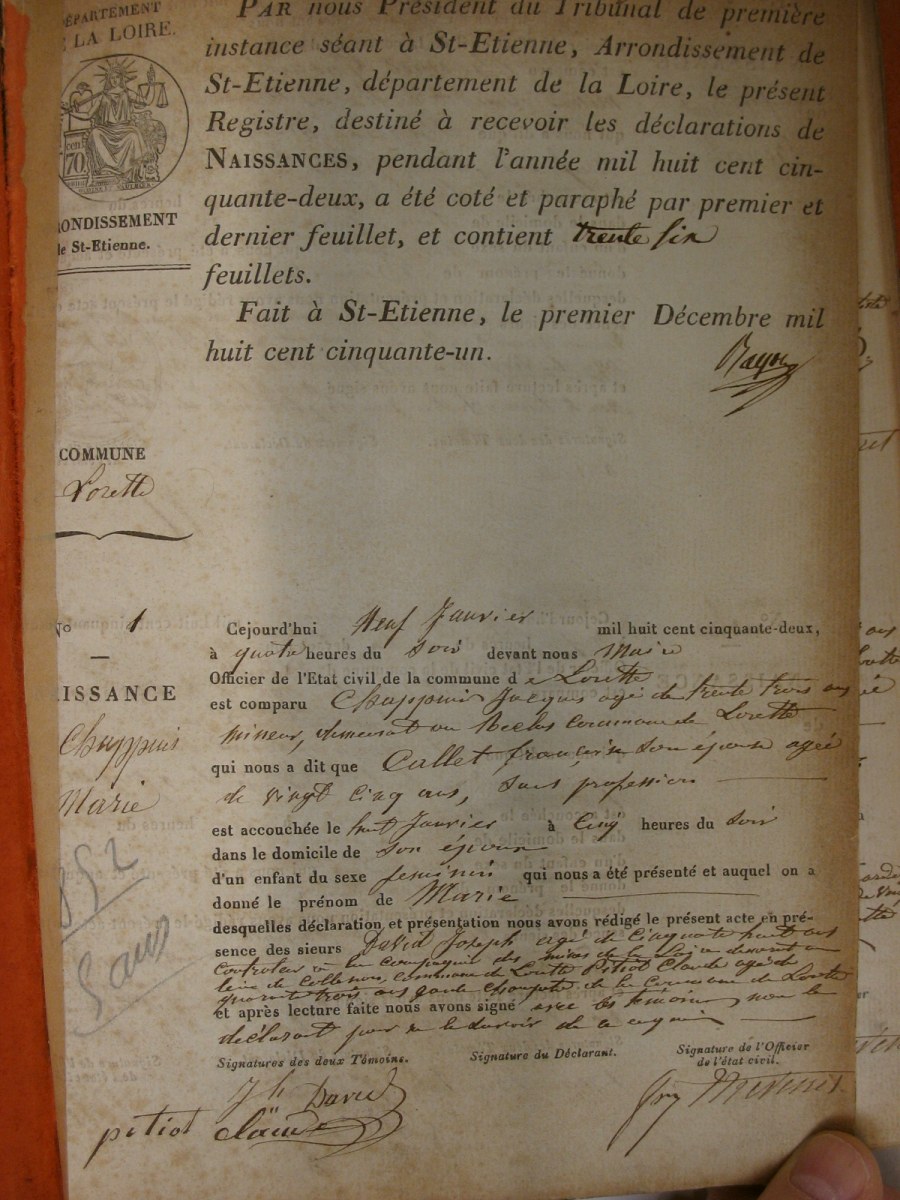 DÉPARTEMENT
LA LOIRE.
70
RONDISSEMENT
le St-Etienne.
PAR nous Président du Tribunal de première
instance séant à St-Etienne, Arrondissement de
St-Etienne, département de la Loire, le présent
Registre, destiné à recevoir les déclarations de
NAISSANCES, pendant l'année mil huit cent cin-
quante-deux, a été coté et paraphé par premier et
dernier feuillet, et contient trente six
feuillets.
Fait à St-Etienne, le premier Décembre mil
huit cent cinquante-un.
COMMUNE
Lorette
No 1
ISSANCE
Chappuis
Marie
852
Cejourd'hui Neuf Janvier mil huit cent cinquante-deux,
à quatre heures du soir devant nous Maire
Officier de l'Etat civil de la commune d e Lorette
est comparu Chappuis Jacques agé de trente trois ans
mineur, demeurant au Reclus commune de Lorette
qui nous a dit que Collet françoise son épouse agée
de vingt cinq ans, sans profession
est accouchée le huit Janvier à Cinq heures du soir
dans le domicile de son époux
d'un enfant du sexe féminin qui nous a été présenté et auquel on a
donné le prénom de Marie
desquelles déclaration et présentation nous avons rédigé le présent acte en pré-
sence des sieurs David Joseph agé de Cinquante huit ans
Controleur à la compagnie des mines de la Loire demeurant au
commune de Lorette Petiot Claude agé de
quarante trois ans garde champêtre de la Commune de Lorette
et après lecture faite nous avons signé avec les témoins non le
déclarant pour ne le savoir de ce enquis
Signatures des deux Témoins.
Signature du Déclarant.
Signature de l'Officier
de l'état civil.
Jh David
petiot claude